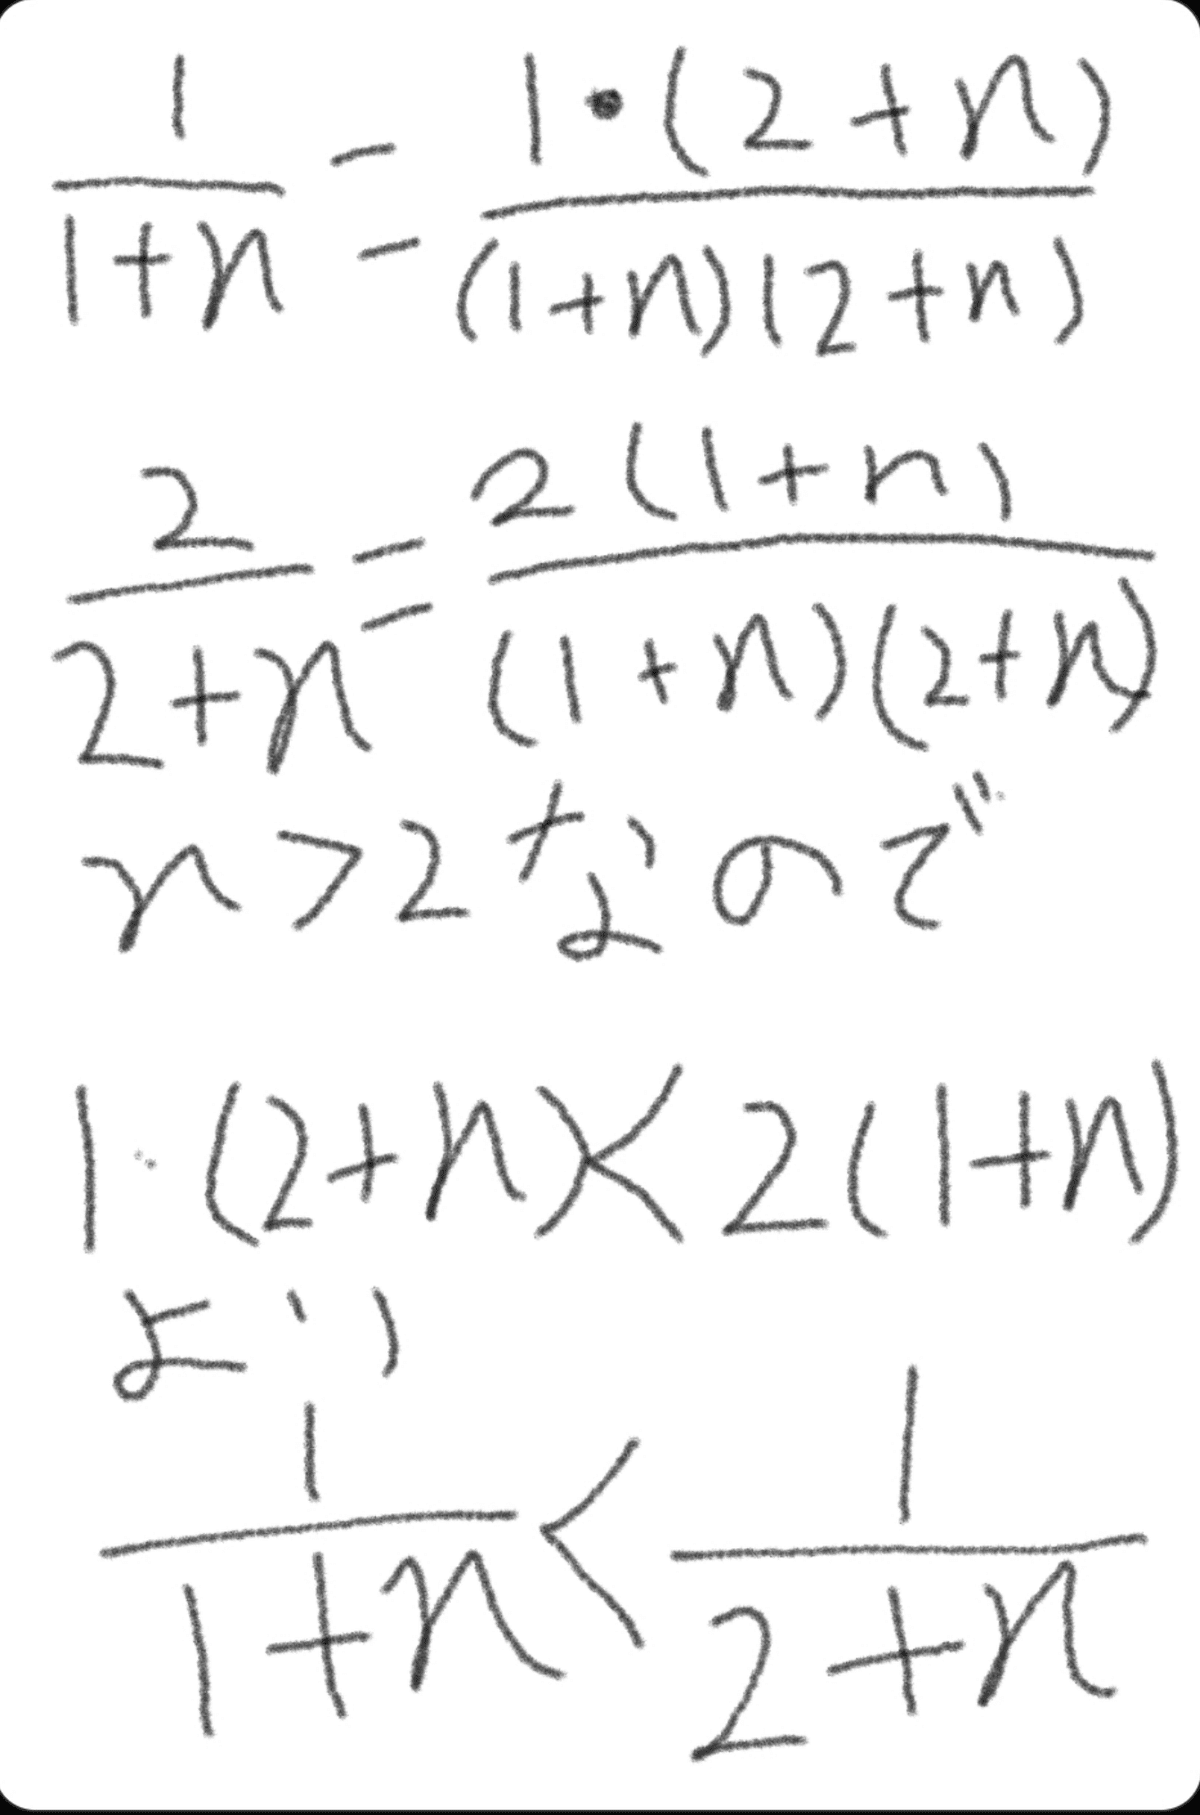 1/(1+n) = 1·(2+n)/((1+n)(2+n))
2/(2+n) = 2(1+n)/((1+n)(2+n))
n>2なので
1·(2+n)<2(1+n)
より
1/(1+n) < 1/(2+n)